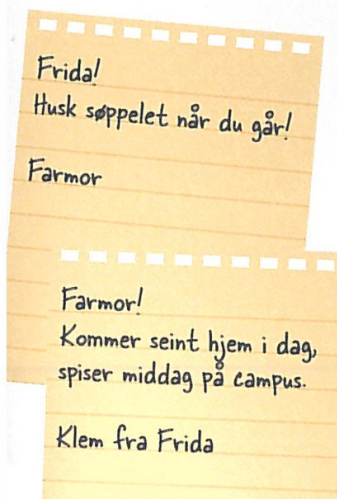 Frida!
Husk søppelet når du går!
Farmor
Farmor!
Kommer seint hjem i dag,
spiser middag på campus.
Klem fra Frida